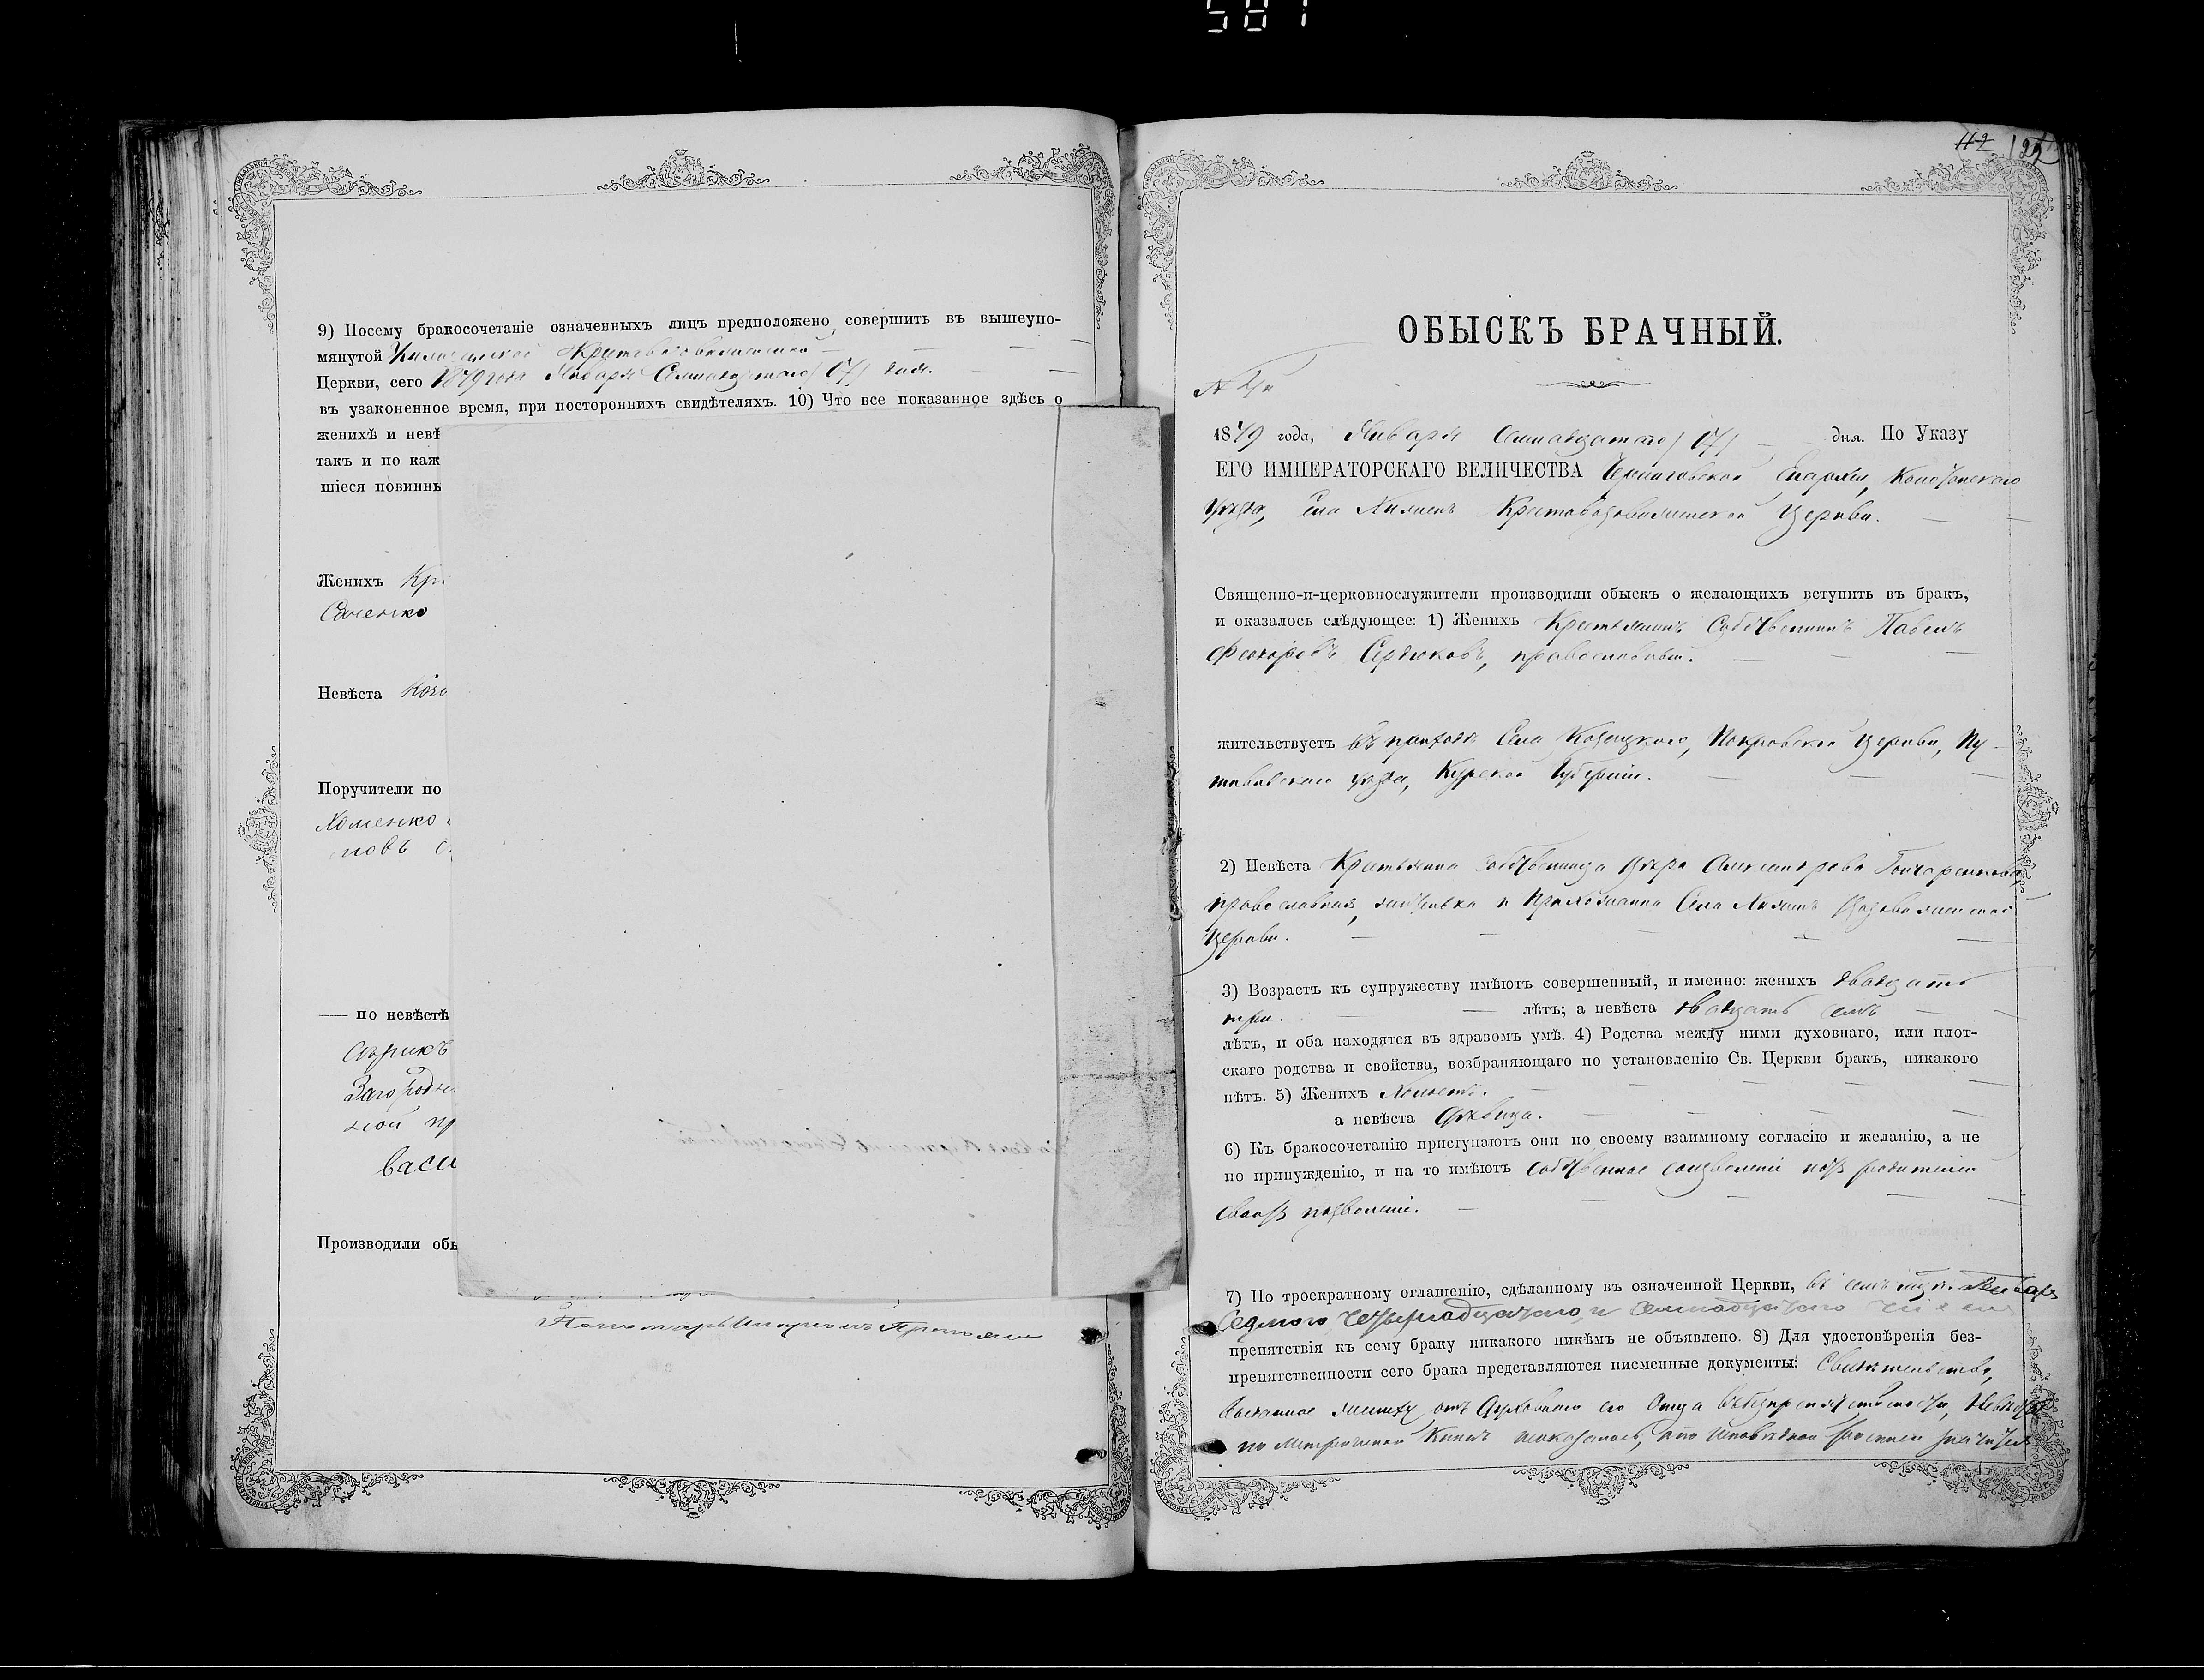 581
9) Посему бракосочетаніе означенныхъ лицъ предположено совершить въ вышеупо-
мянутой
Церкви, сего 1879 года Января Семнадцатаго /17/ дня.
въ узаконенное время, при постороннихъ свидѣтеляхъ. 10) Что все показанное здѣсь о
женихѣ и невѣ
такъ и по каж
шіеся повиннь
Женихъ Кр
Саченко
Невѣста Коза
Поручители по
Хоменко
новъ
— по невѣстѣ
Загородн
ной пр
васи
Производили обы
112
ОБЫСКЪ БРАЧНЫЙ.
1879 года, Января Семнадцатаго /17/ дня. По Указу
ЕГО ИМПЕРАТОРСКАГО ВЕЛИЧЕСТВА Черниговской Епархіи, Конотопскаго
уѣзда, Села Крестовоздвиженской Церкви.
Священно-и-церковнослужители производили обыскъ о желающихъ вступить въ бракъ,
и оказалось слѣдующее: 1) Женихъ Крестьянинъ Собственникъ Павелъ
Феодоровъ Сердюковъ, православный.
жительствуетъ въ приходѣ Села Козацкаго, Покровской Церкви, Пу-
тивльскаго уѣзда, Курской Губерніи.
2) Невѣста Крестьянка собственница Александрова Гончаренкова,
православная, жителька и Прихожанка Села Воздвиженской
Церкви.
3) Возрастъ къ супружеству имѣютъ совершенный, и именно: женихъ двадцать
три. лѣтъ; а невѣста двадцать семь
лѣтъ, и оба находятся въ здравомъ умѣ. 4) Родства между ними духовнаго, или плот-
скаго родства и свойства, возбраняющаго по установленію Св. Церкви бракъ, никакого
нѣтъ. 5) Женихъ Холостъ.
а невѣста Дѣвица.
6) Къ бракосочетанію приступаютъ они по своему взаимному согласію и желанію, а не
по принужденію, и на то имѣютъ собственное соизволеніе и отъ родителей
своихъ позволеніе.
7) По троекратному оглашенію, сдѣланному въ означенной Церкви, въ семъ мцѣ Январѣ
Седмого, Четырнадцатаго, и Семнадцатаго числа
препятствія къ сему браку никакого никѣмъ не объявлено. 8) Для удостовѣренія без-
препятственности сего брака представляются писменные документы: Свидѣтельство,
выданное жениху отъ Духовнаго его Отца о безпрепятственности, Невѣста
по Метрической Книгѣ показалась, и по Исповѣдной росписи значится